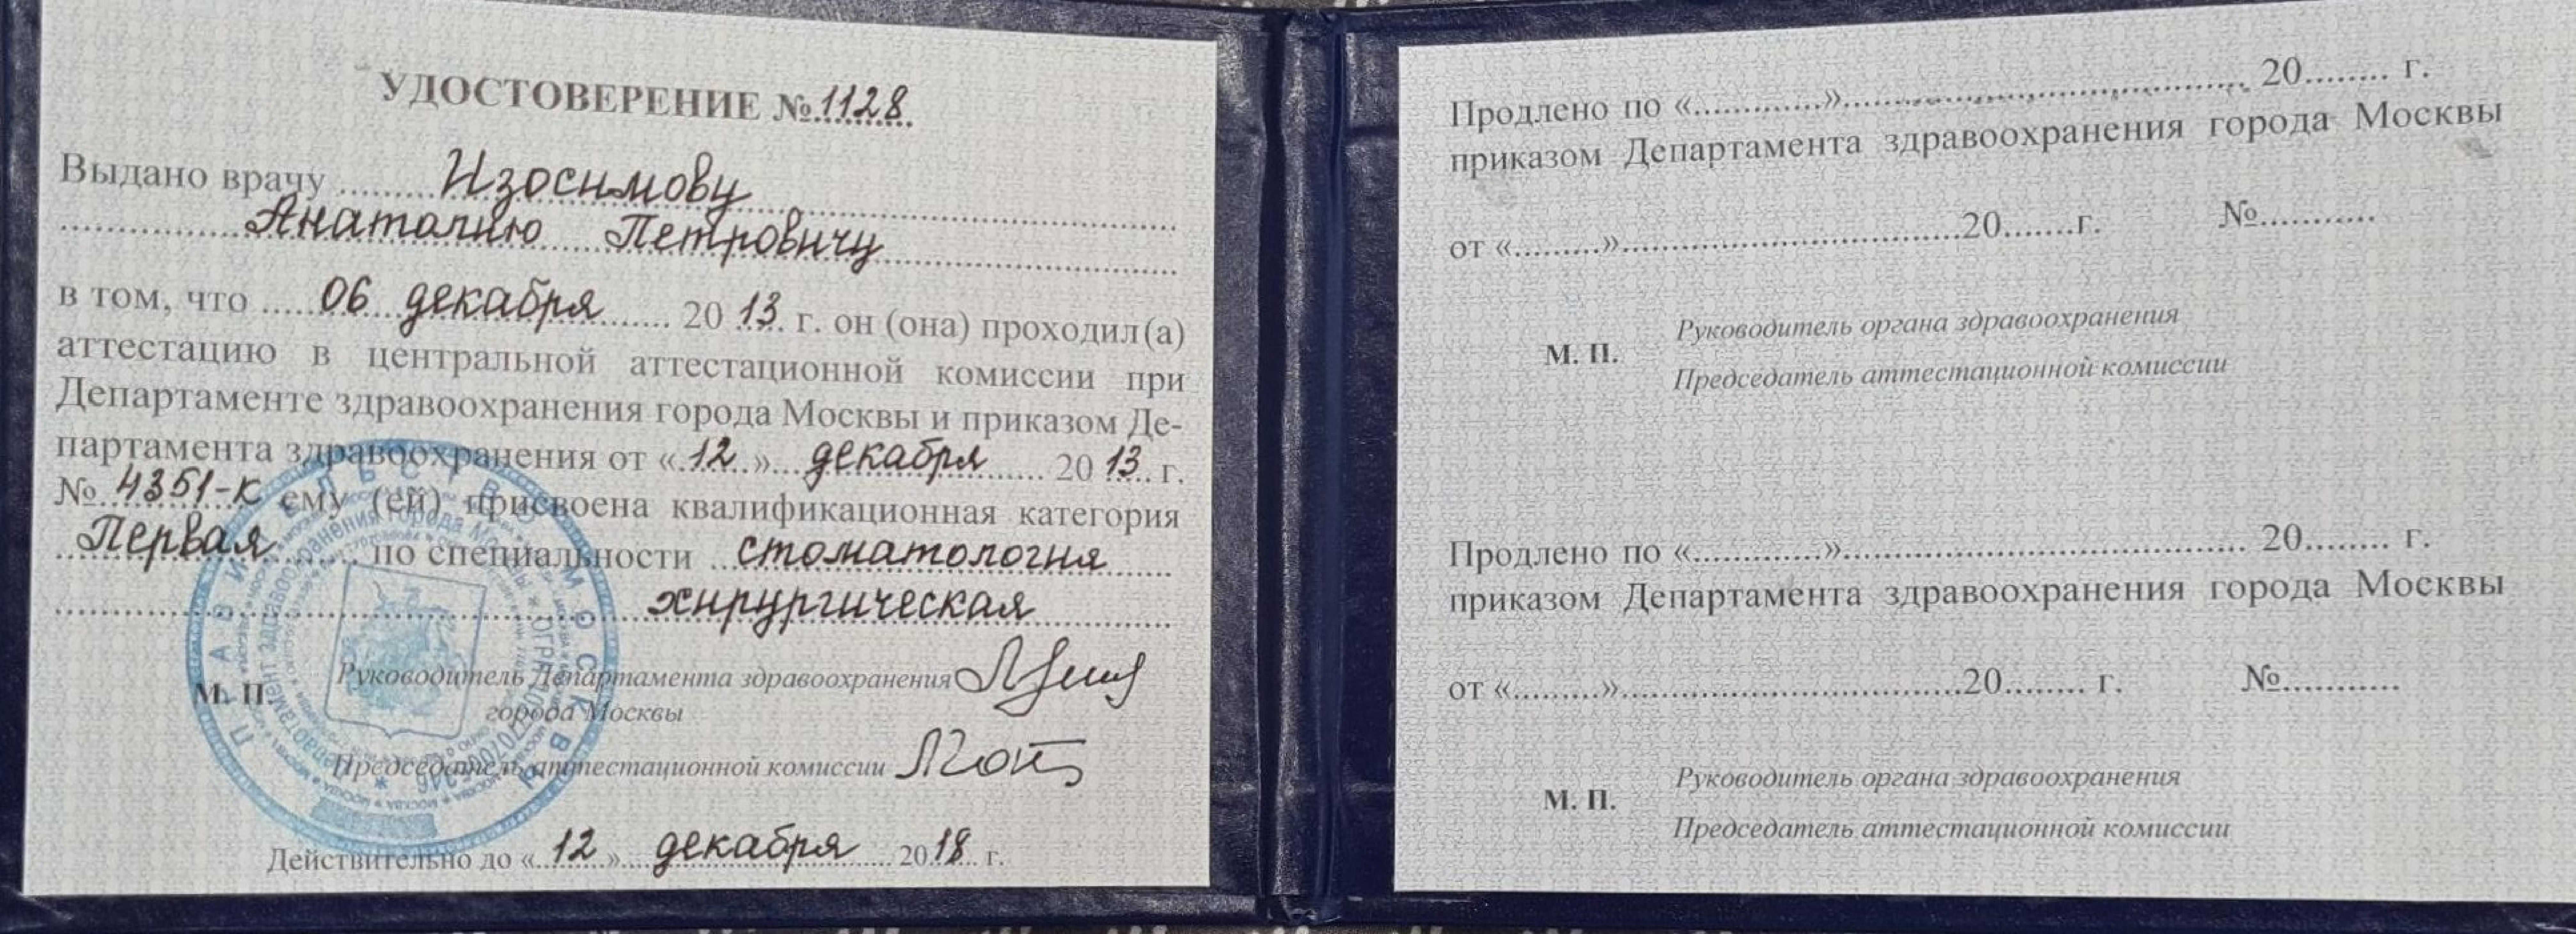 УДОСТОВЕРЕНИЕ №1128
Выдано врачу Изосимову
Анатолию Петровичу
в том, что 06 декабря 2013 г. он (она) проходил(а)
аттестацию в центральной аттестационной комиссии при
Департаменте здравоохранения города Москвы и приказом Де-
партамента здравоохранения от «12» декабря 2013 г.
№ 4351-к ему (ей) присвоена квалификационная категория
Первая по специальности стоматология
хирургическая
М. П. Руководитель Департамента здравоохранения
города Москвы
Председатель аттестационной комиссии
Действительно до «12» декабря 2018 г.
ПРАВИТЕЛЬСТВО МОСКВЫ
Продлено по «.............»........................................ 20........ г.
приказом Департамента здравоохранения города Москвы
от «.........»....................................20.......г. №............
Руководитель органа здравоохранения
М. П.
Председатель аттестационной комиссии
Продлено по «.............»........................................ 20........ г.
приказом Департамента здравоохранения города Москвы
от «.........»....................................20........ г. №............
Руководитель органа здравоохранения
М. П.
Председатель аттестационной комиссии